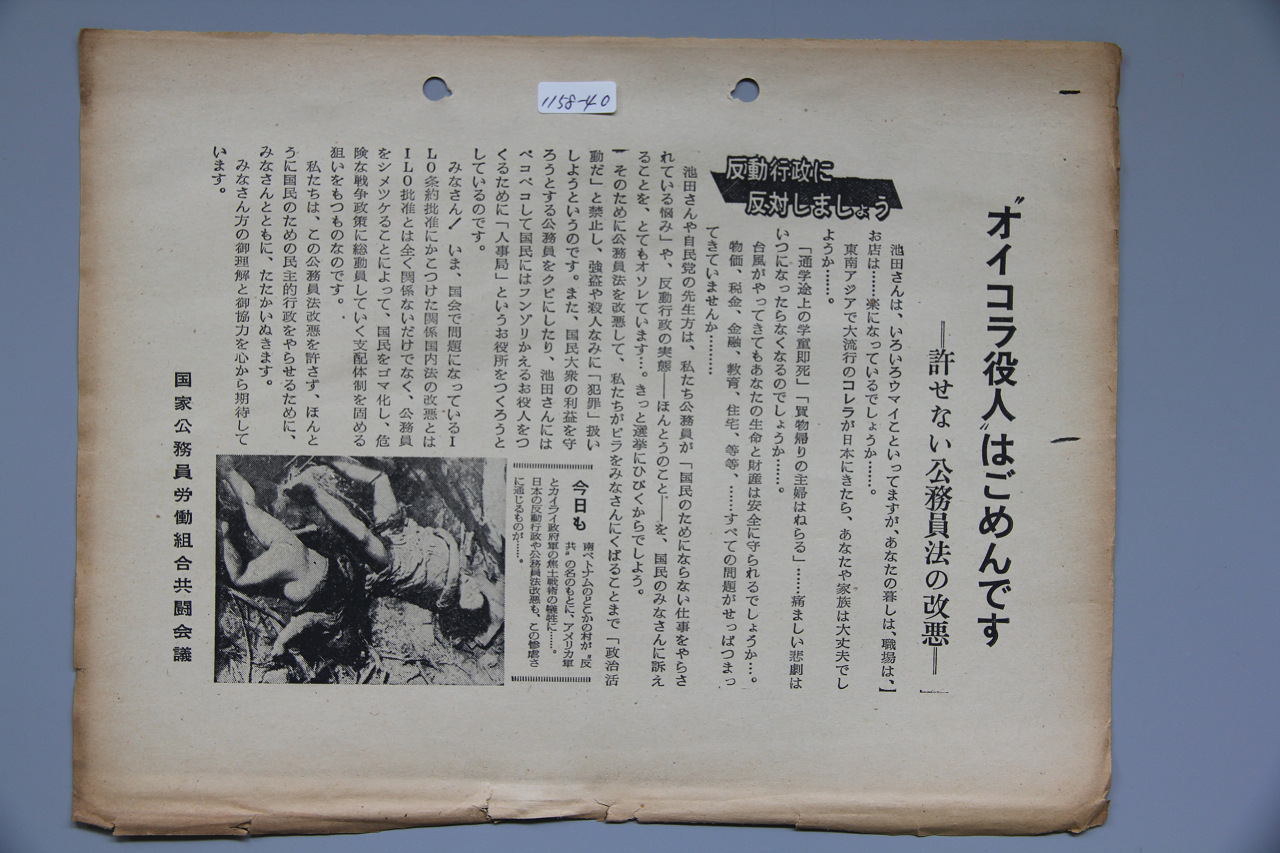 1158-40
“オイコラ役人”はごめんです
――許せない公務員法の改悪――
池田さんは、いろいろウマイこといってますが、あなたの暮しは、職場は、
お店は……楽になっているでしょうか……。
東南アジアで大流行のコレラが日本にきたら、あなたや家族は大丈夫でし
ようか……。
「通学途上の学童即死」「買物帰りの主婦はねらる」……痛ましい悲劇は
いつになったらなくなるのでしょうか……。
台風がやってきてもあなたの生命と財産は安全に守られるでしょうか…。
物価、税金、金融、教育、住宅、等等、……すべての問題がせっぱつまっ
てきていませんか…………
反動行政に
反対しましょう
池田さんや自民党の先生方は、私たち公務員が「国民のためにならない仕事をやらさ
れている悩み」や、反動行政の実態――ほんとうのこと――を、国民のみなさんに訴え
ることを、とてもオソレています…。きっと選挙にひびくからでしよう。
そのために公務員法を改悪して、私たちがビラをみなさんにくばることまで「政治活
動だ」と禁止し、強盗や殺人なみに「犯罪」扱い
しようというのです。また、国民大衆の利益を守
ろうとする公務員をクビにしたり、池田さんには
ペコペコして国民にはフンゾリかえるお役人をつ
くるために「人事局」というお役所をつくろうと
しているのです。
みなさん！　いま、国会で問題になっているI
LO条約批准にかこつけた関係国内法の改悪とは
ILO批准とは全く関係ないだけでなく、公務員
をシメツケることによって、国民をゴマ化し、危
険な戦争政策に総動員していく支配体制を固める
狙いをもつものなのです。
私たちは、この公務員法改悪を許さず、ほんと
うに国民のための民主的行政をやらせるために、
みなさんとともに、たたかいぬきます。
みなさん方の御理解と御協力を心から期待して
います。
今日も
南ベトナムのどこかの村が“反
共”の名のもとに、アメリカ軍
とカイライ政府軍の焦土戦術の犠牲に……。
日本の反動行政や公務員法改悪も、この惨虐さ
に通じるものが……。
国家公務員労働組合共闘会議